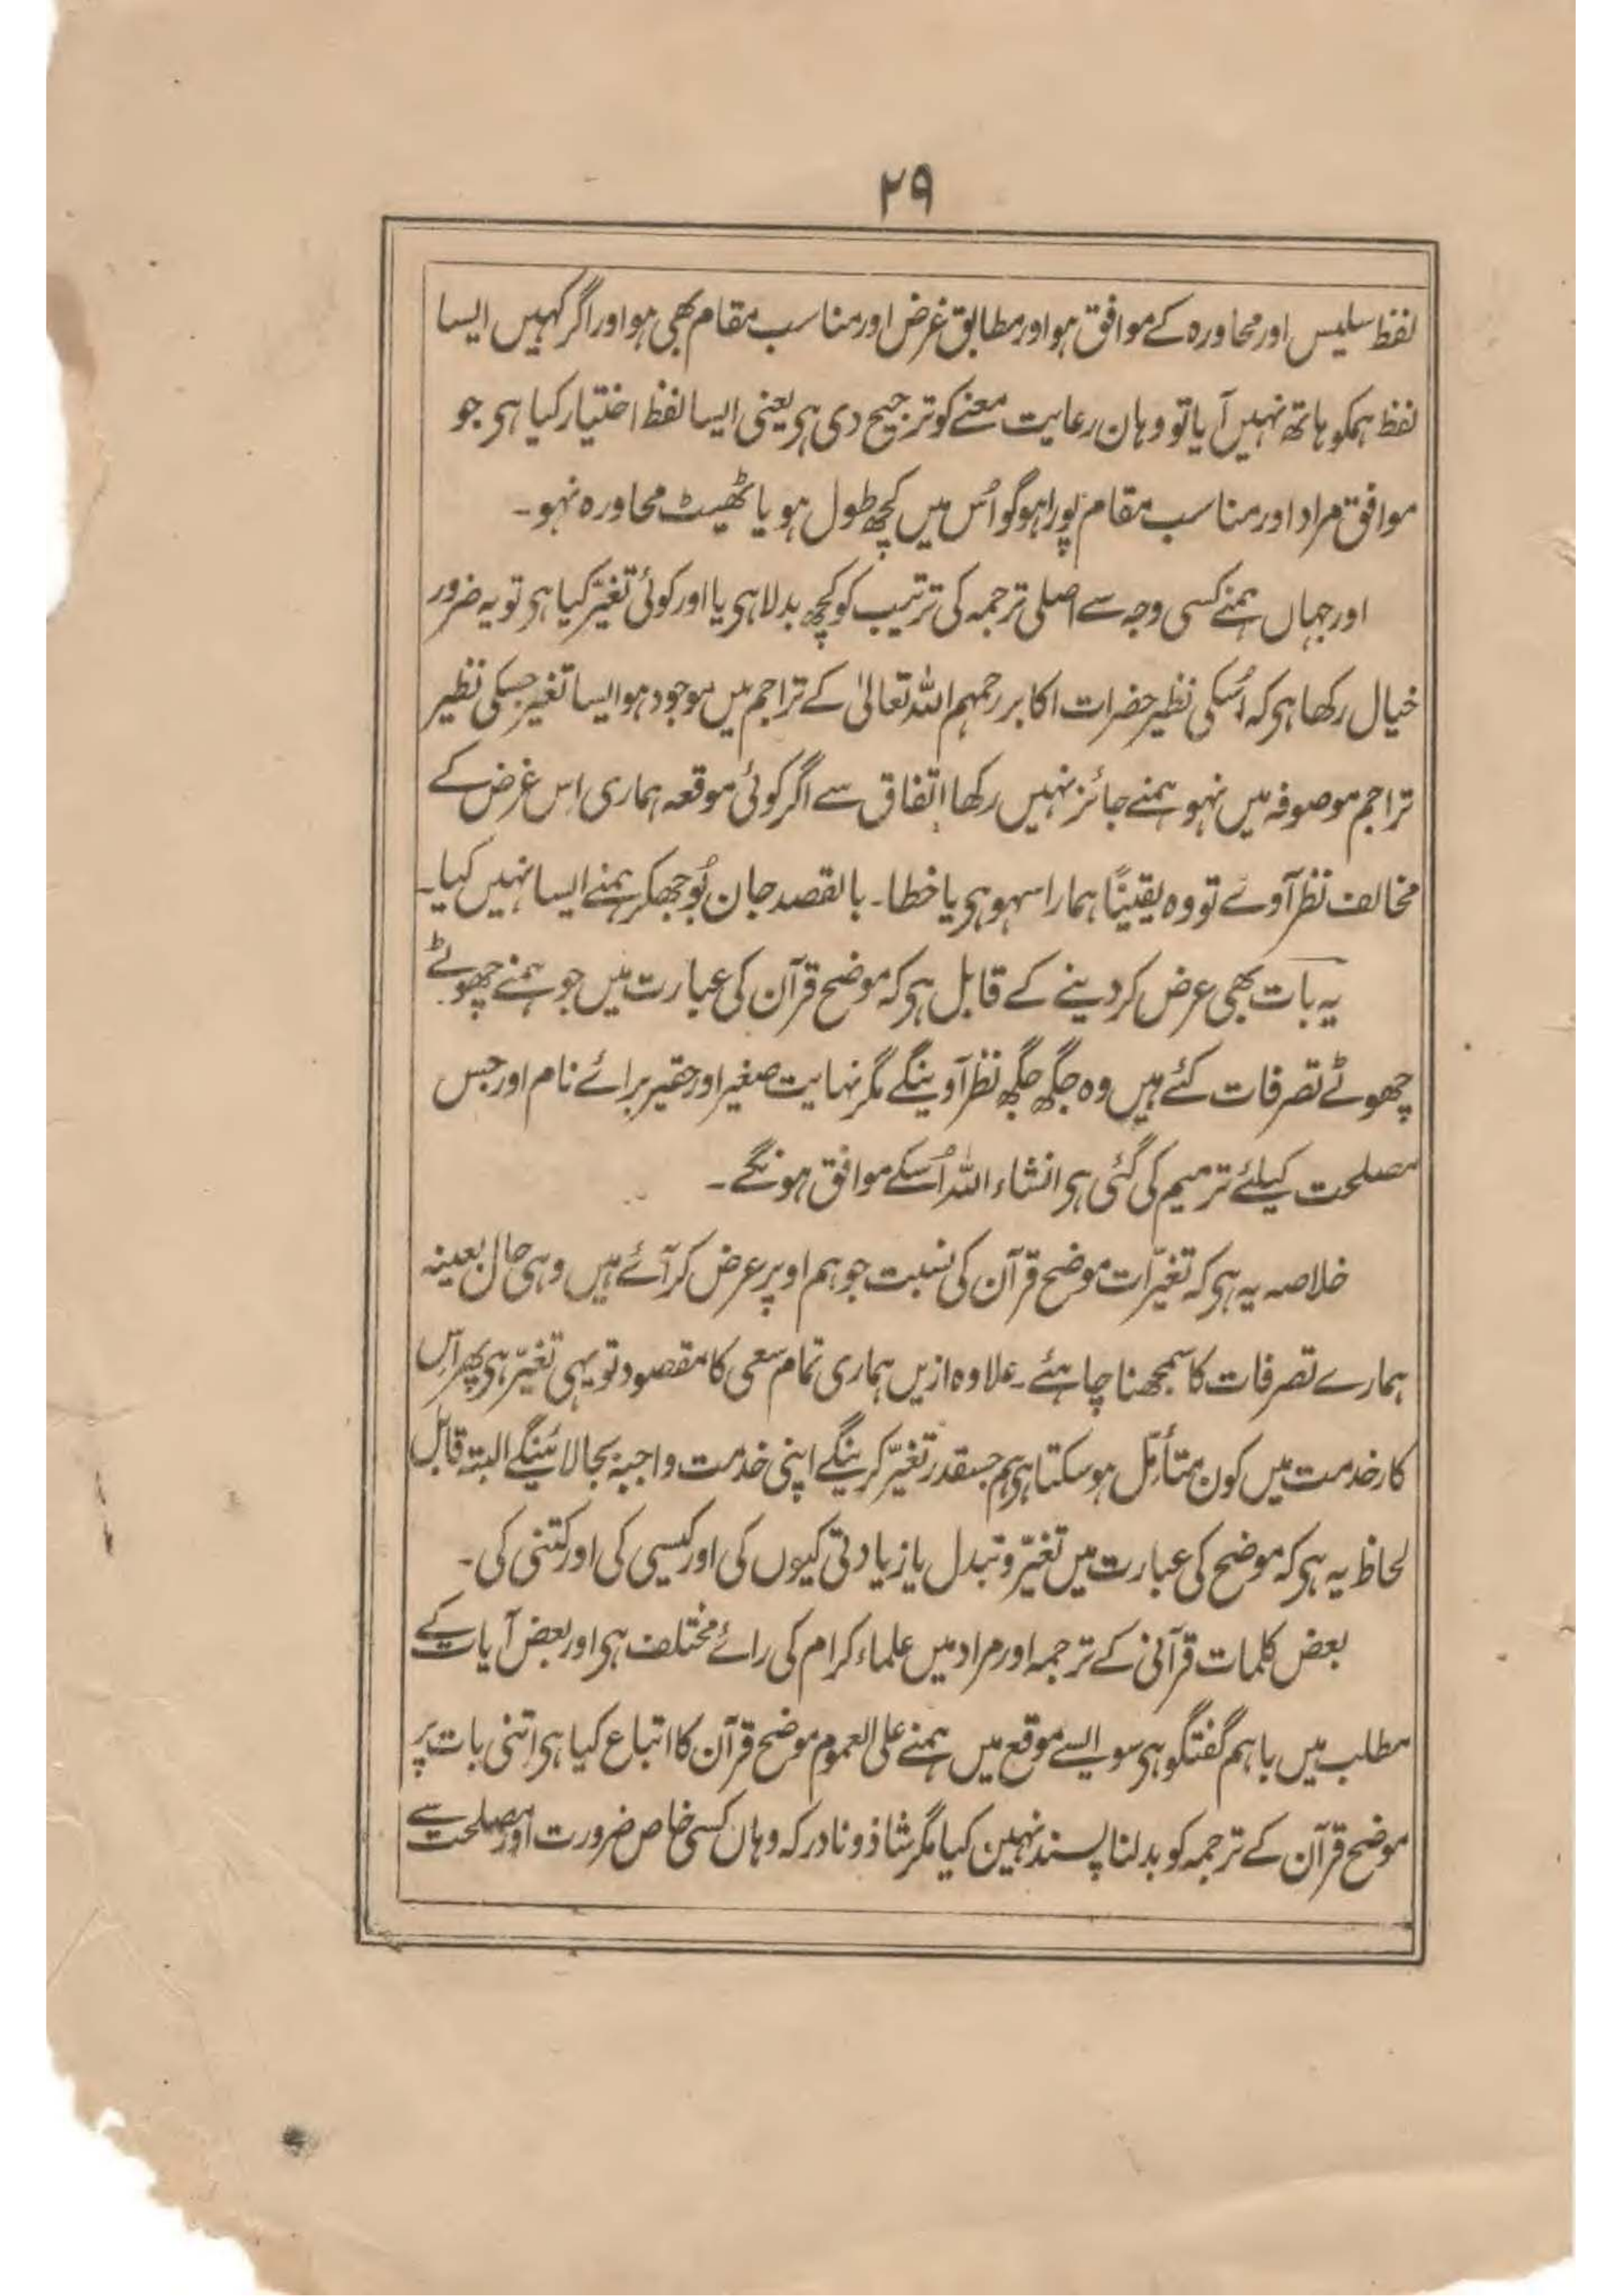 ۲۹
لفظ سلیس اور محاورہ کے موافق ہو اور مطابق غرض اور مناسب مقام بھی ہو اور اگر کہیں ایسا
لفظ ہمکو ہاتھ نہیں آیا تو وہان رعایت معنے کو ترجیح دی ہی یعنی ایسا لفظ اختیار کیا ہی جو
موافق مراد اور مناسب مقام پورا ہو گو اُس میں کچھ طول ہو یا ٹھیٹ محاورہ نہو۔
اور جہاں ہمنے کسی وجہ سے اصلی ترجمہ کی ترتیب کو کچھ بدلا ہی یا اور کوئی تغیّر کیا ہی تو یہ ضرور
خیال رکھا ہی کہ اُسکی نظیر حضرات اکابر رحمہم اللہ تعالیٰ کے تراجم میں موجود ہو ایسا تغیر جسکی نظیر
تراجم موصوفہ میں نہو ہمنے جائز نہیں رکھا اتفاق سے اگر کوئی موقعہ ہماری اس غرض کے
مخالف نظر آوے تو وہ یقینًا ہمارا سہو ہی یا خطا۔ بالقصد جان بُوجھکر ہمنے ایسا نہیں کیا۔
یہ بات بھی عرض کر دینے کے قابل ہی کہ موضح قرآن کی عبارت میں جو ہمنے چھوٹے
چھوٹے تصرفات کئے ہیں وہ جگہ جگہ نظر آوینگے مگر نہایت صغیر اور حقیر برائے نام اور جس
مصلحت کیلئے ترمیم کی گئی ہی انشاء اللہ اُسکے موافق ہونگے۔
خلاصہ یہ ہی کہ تغیّرات موضح قرآن کی نسبت جو ہم اوپر عرض کر آئے ہیں وہی حال بعینہ
ہمارے تصرفات کا سمجھنا چاہئے۔ علاوہ ازیں ہماری تمام سعی کا مقصود تو یہی تغیّر ہی پھر اس
کار خدمت میں کون متأمّل ہو سکتا ہی ہم جسقدر تغیّر کرینگے اپنی خدمت واجبہ بجا لائینگے البتہ قابل
لحاظ یہ ہی کہ موضح کی عبارت میں تغیّر و تبدل یا زیادتی کیوں کی اور کیسی کی اور کتنی کی۔
بعض کلمات قرآنی کے ترجمہ اور مراد میں علماء کرام کی رائے مختلف ہی اور بعض آیات کے
مطلب میں باہم گفتگو ہی سو ایسے موقع میں ہمنے علی العموم موضح قرآن کا اتباع کیا ہی اتنی بات پر
موضح قرآن کے ترجمہ کو بدلنا پسند نہیں کیا مگر شاذ و نادر کہ وہاں کسی خاص ضرورت اور مصلحت سے